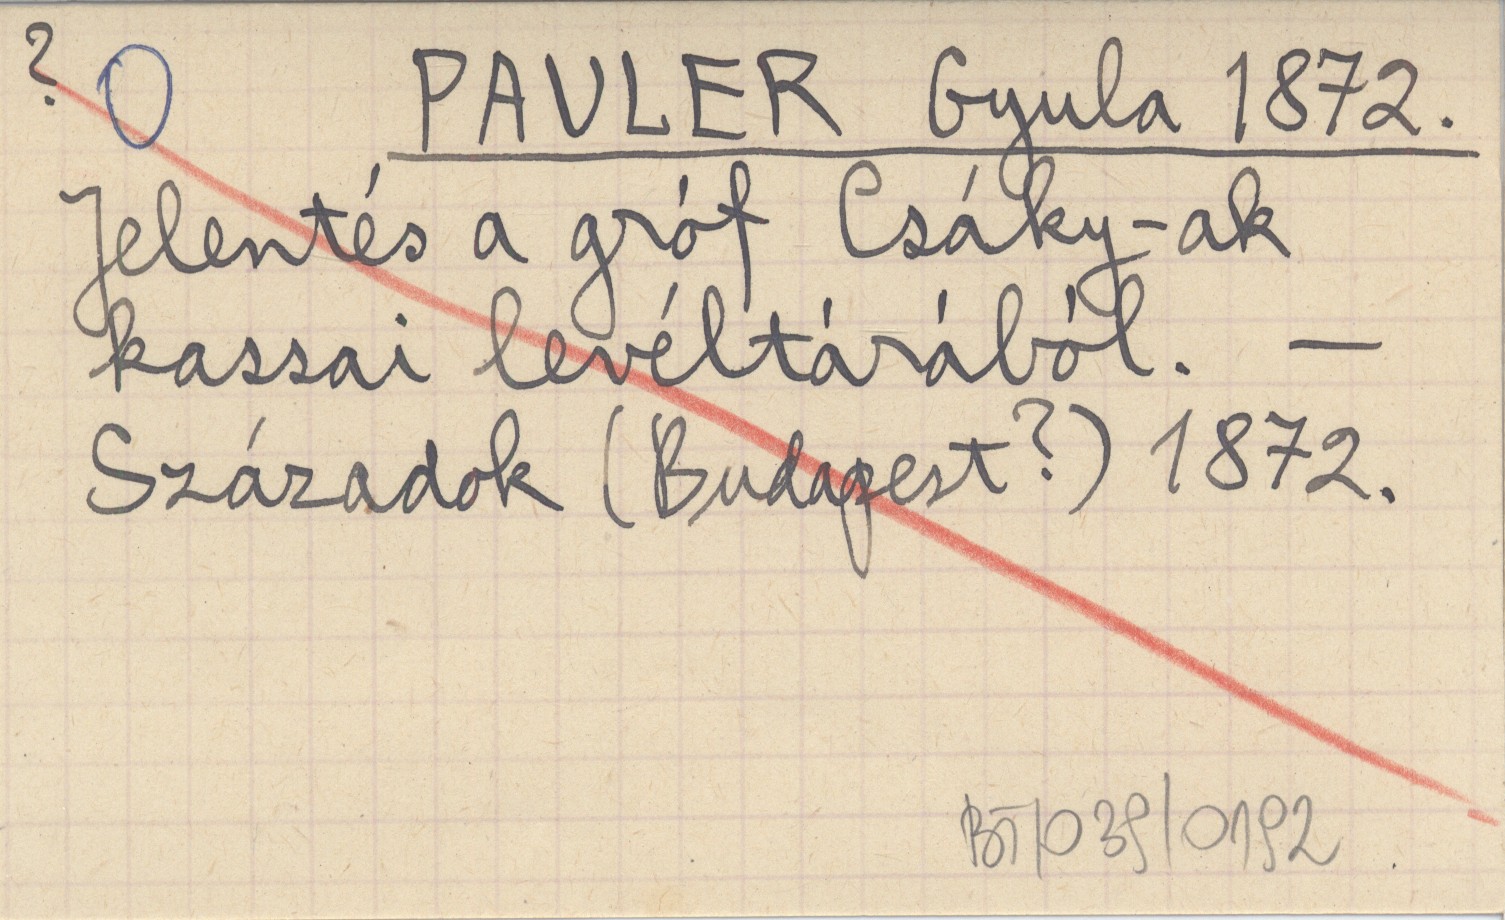 ? O PAULER Gyula 1872.
Jelentés a gróf Csáky-ak
kassai levéltárából. —
Századok (Budapest?) 1872.
BT/039/0192